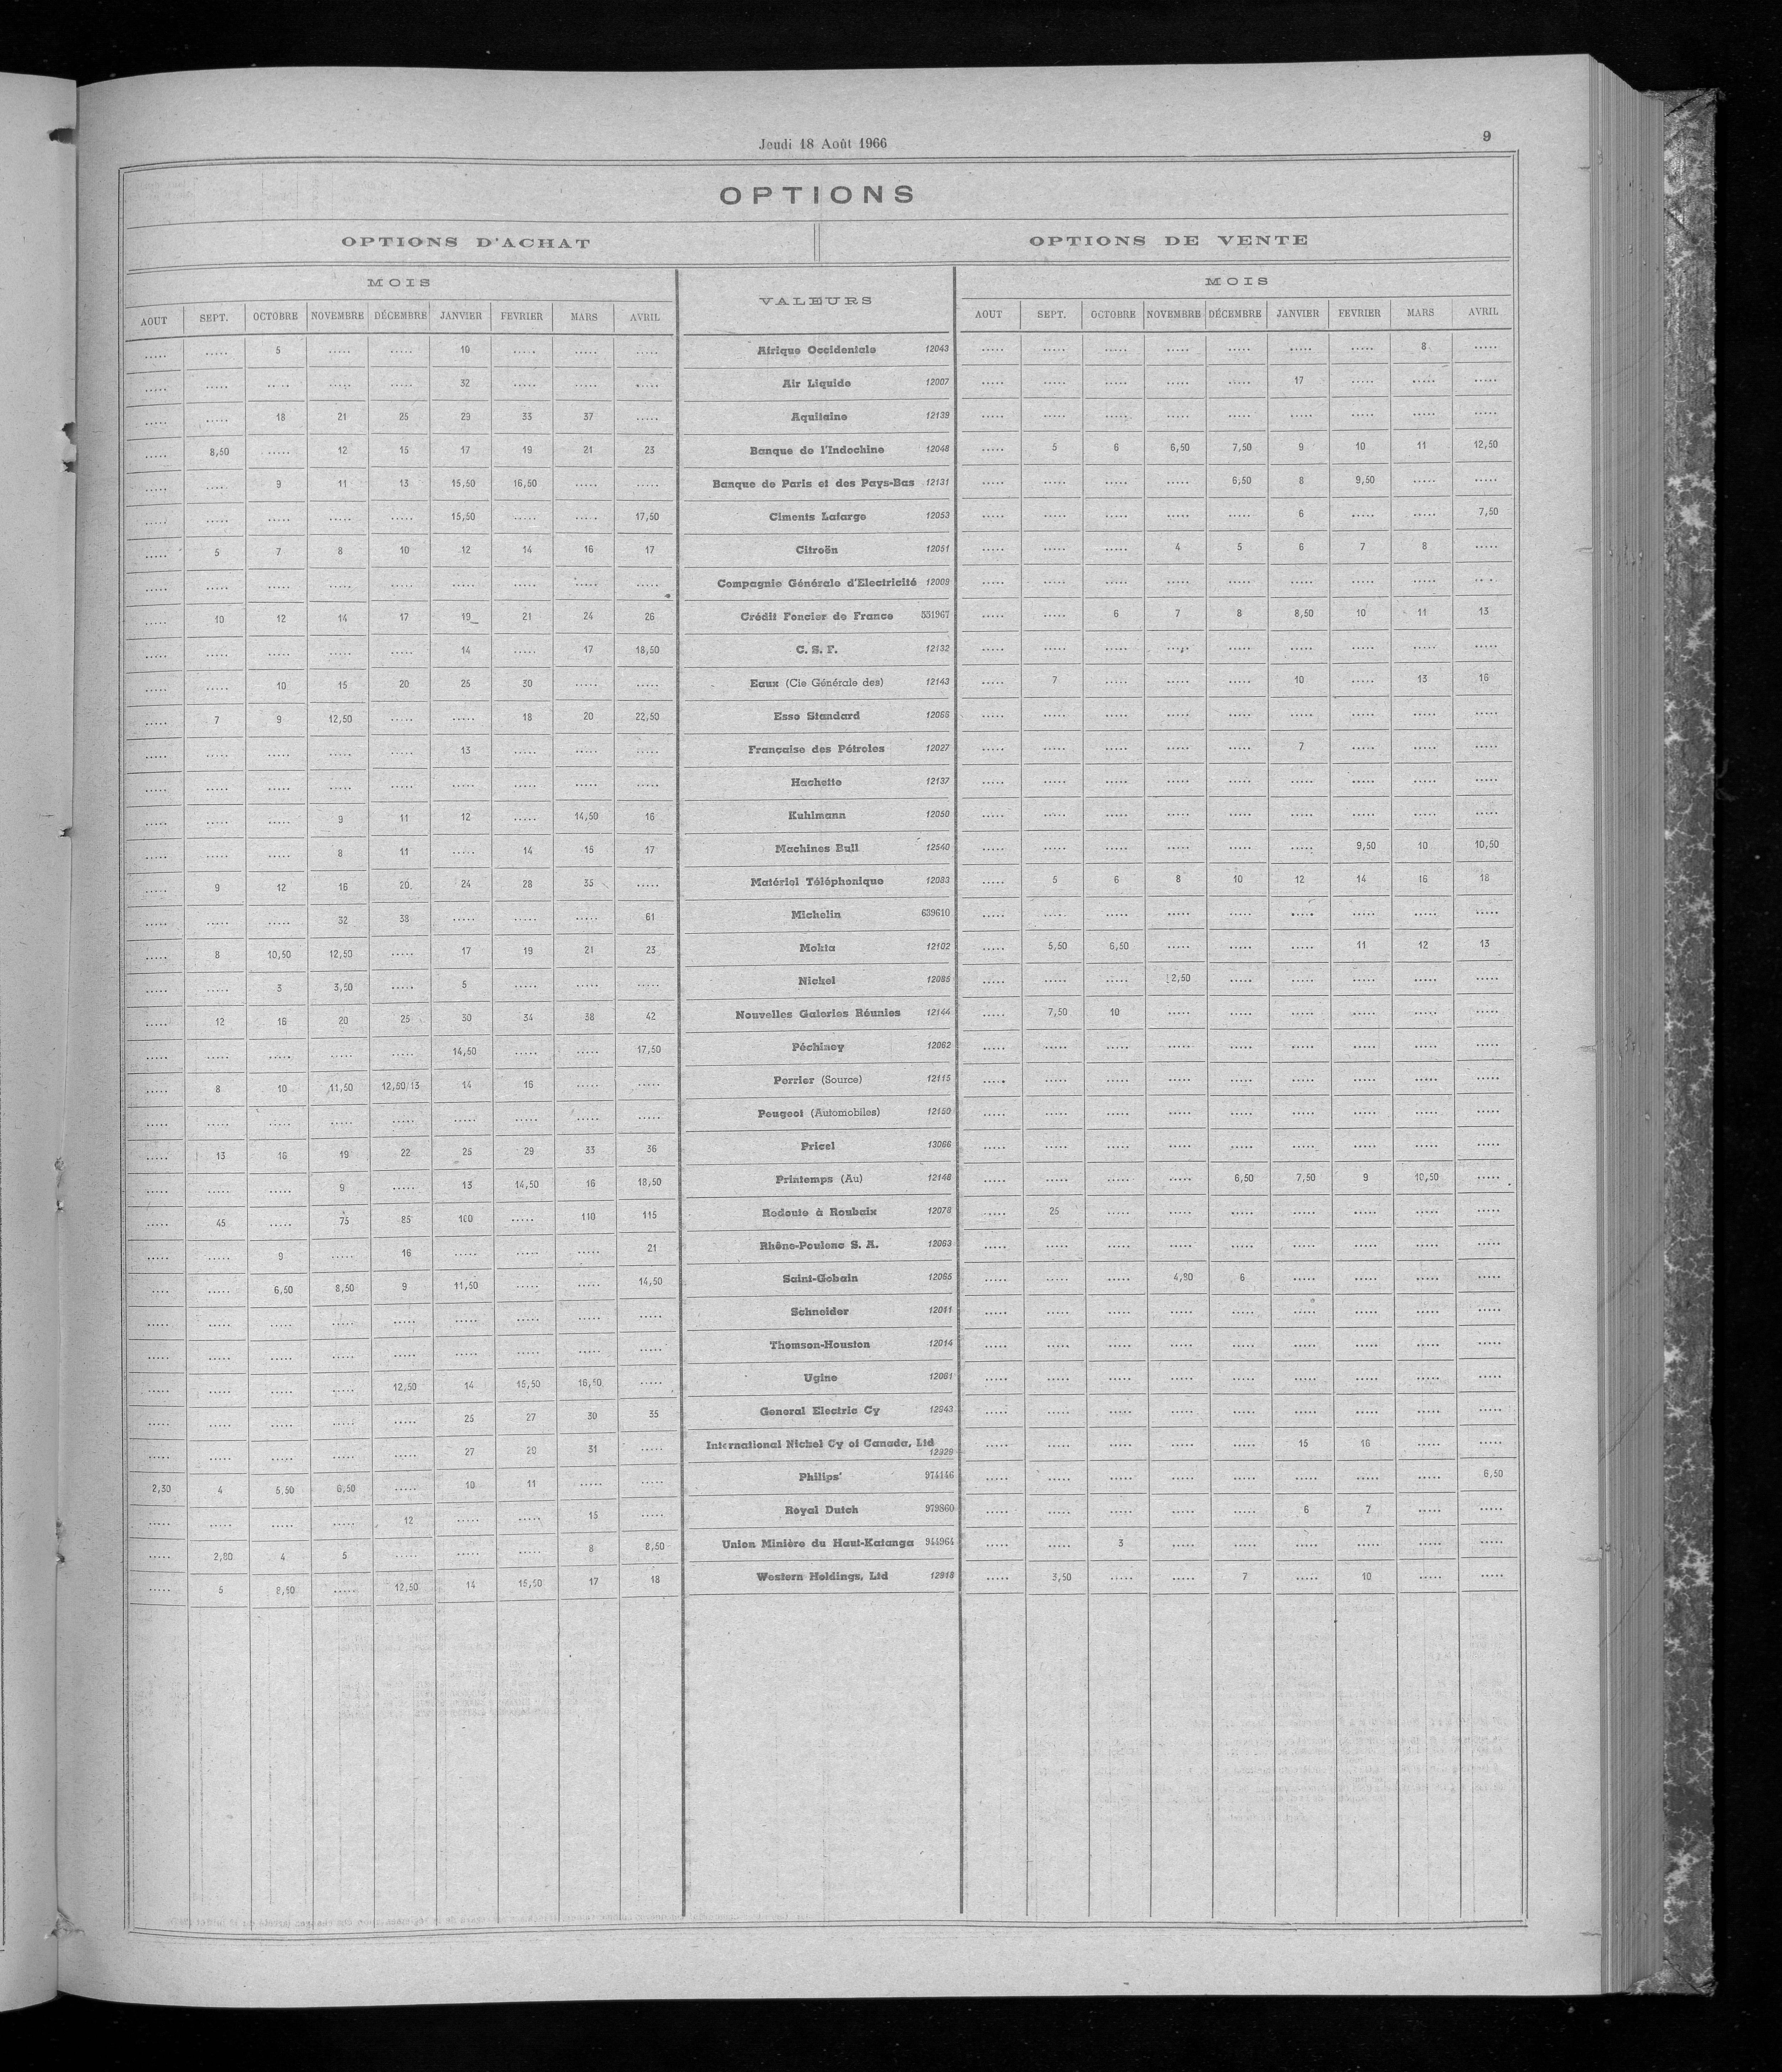 Jeudi 18 Août 1966
9
OPTIONS
OPTIONS D'ACHAT OPTIONS DE VENTE
MOIS VALEURS MOIS
AOUT SEPT. OCTOBRE NOVEMBRE DÉCEMBRE JANVIER FEVRIER MARS AVRIL AOUT SEPT. OCTOBRE NOVEMBRE DÉCEMBRE JANVIER FEVRIER MARS AVRIL
..... ..... 5 ..... ..... 10 ..... ..... ..... Afrique Occidentale 12043 ..... ..... ..... ..... ..... ..... ..... 8 .....
..... ..... ..... ..... ..... 32 ..... ..... ..... Air Liquide 12007 ..... ..... ..... ..... ..... 17 ..... ..... .....
..... ..... 18 21 25 29 33 37 ..... Aquitaine 12139 ..... ..... ..... ..... ..... ..... ..... ..... .....
..... 8,50 ..... 12 15 17 19 21 23 Banque de l'Indochine 12048 ..... 5 6 6,50 7,50 9 10 11 12,50
..... .... 9 11 13 15,50 16,50 ..... ..... Banque de Paris et des Pays-Bas 12131 ..... ..... ..... ..... 6,50 8 9,50 ..... .....
..... ..... ..... ..... ..... 15,50 ..... ..... 17,50 Ciments Lafarge 12053 ..... ..... ..... ..... ..... 6 ..... ..... 7,50
..... 5 7 8 10 12 14 16 17 Citroën 12051 ..... ..... ..... 4 5 6 7 8 .....
..... ..... ..... ..... ..... ..... ..... ..... ..... Compagnie Générale d'Electricité 12009 ..... ..... ..... ..... ..... ..... ..... ..... .....
..... 10 12 14 17 19 21 24 26 Crédit Foncier de France 531967 ..... ..... 6 7 8 8,50 10 11 13
..... ..... ..... ..... ..... 14 ..... 17 18,50 C. S. F. 12132 ..... ..... ..... ..... ..... ..... ..... ..... .....
..... ..... 10 15 20 25 30 ..... ..... Eaux (Cie Générale des) 12143 ..... 7 ..... ..... ..... 10 ..... 13 16
..... 7 9 12,50 ..... ..... 18 20 22,50 Esso Standard ..... ..... ..... ..... ..... ..... ..... ..... .....
..... ..... ..... ..... ..... 13 ..... ..... ..... Française des Pétroles 12027 ..... ..... ..... ..... ..... 7 ..... ..... .....
..... ..... ..... ..... ..... ..... ..... ..... ..... Hachette 12137 ..... ..... ..... ..... ..... ..... ..... ..... .....
..... ..... ..... 9 11 12 ..... 14,50 16 Kuhlmann 12050 ..... ..... ..... ..... ..... ..... ..... ..... .....
..... ..... ..... 8 11 ..... 14 15 17 Machines Bull 12540 ..... ..... ..... ..... ..... ..... 9,50 10 10,50
..... 9 12 16 20 24 28 35 ..... Matériel Téléphonique 12083 ..... 5 6 8 10 12 14 16 18
..... ..... ..... 32 38 ..... ..... ..... 61 Michelin 639610 ..... ..... ..... ..... ..... ..... ..... ..... .....
..... 8 10,50 12,50 ..... 17 19 21 23 Mokta 12102 ..... 5,50 6,50 ..... ..... ..... 11 12 13
..... ..... 3 3,50 ..... 5 ..... ..... ..... Nickel 12085 ..... ..... ..... 2,50 ..... ..... ..... ..... .....
..... 12 16 20 25 30 34 38 42 Nouvelles Galeries Réunies 12144 ..... 7,50 10 ..... ..... ..... ..... ..... .....
..... ..... ..... ..... ..... 14,50 ..... ..... 17,50 Péchiney 12062 ..... ..... ..... ..... ..... ..... ..... ..... .....
..... 8 10 11,50 12,50/13 14 16 ..... ..... Perrier (Source) 12115 ..... ..... ..... ..... ..... ..... ..... ..... .....
..... ..... ..... ..... ..... ..... ..... ..... ..... Peugeot (Automobiles) 12150 ..... ..... ..... ..... ..... ..... ..... ..... .....
..... 13 16 19 22 25 29 33 36 Pricel 13066 ..... ..... ..... ..... ..... ..... ..... ..... .....
..... ..... ..... 9 ..... 13 14,50 16 18,50 Printemps (Au) 12148 ..... ..... ..... ..... 6,50 7,50 9 10,50 .....
..... 45 ..... 75 85 100 ..... 110 115 Redoute à Roubaix 12078 ..... 25 ..... ..... ..... ..... ..... ..... .....
..... ..... 9 ..... 16 ..... ..... ..... 21 Rhône-Poulenc S. A. 12063 ..... ..... ..... ..... ..... ..... ..... ..... .....
.... ..... 6,50 8,50 9 11,50 ..... ..... 14,50 Saint-Gobain 12065 ..... ..... ..... 4,80 6 ..... ..... ..... .....
..... ..... ..... ..... ..... ..... ..... ..... ..... Schneider 12011 ..... ..... ..... ..... ..... ..... ..... ..... .....
..... ..... ..... ..... ..... ..... ..... ..... ..... Thomson-Houston 12014 ..... ..... ..... ..... ..... ..... ..... ..... .....
..... ..... ..... ..... 12,50 14 15,50 16,50 ..... Ugine 12061 ..... ..... ..... ..... ..... ..... ..... ..... .....
..... ..... ..... ..... ..... 25 27 30 35 General Electric Cy 12943 ..... ..... ..... ..... ..... ..... ..... ..... .....
..... ..... ..... ..... ..... 27 29 31 ..... International Nickel Cy of Canada, Ltd 12929 ..... ..... ..... ..... ..... 15 16 ..... .....
2,30 4 5,50 6,50 ..... 10 11 ..... ..... Philips' 974146 ..... ..... ..... ..... ..... ..... ..... ..... 6,50
..... ..... ..... ..... 12 ..... ..... 15 ..... Royal Dutch 979860 ..... ..... ..... ..... ..... 6 7 ..... .....
..... 2,80 4 5 ..... ..... ..... 8 8,50 Union Minière du Haut-Katanga 944964 ..... ..... 3 ..... ..... ..... ..... ..... .....
..... 5 8,50 ..... 12,50 14 15,50 17 18 Western Holdings, Ltd 12918 ..... 3,50 ..... ..... 7 ..... 10 ..... .....